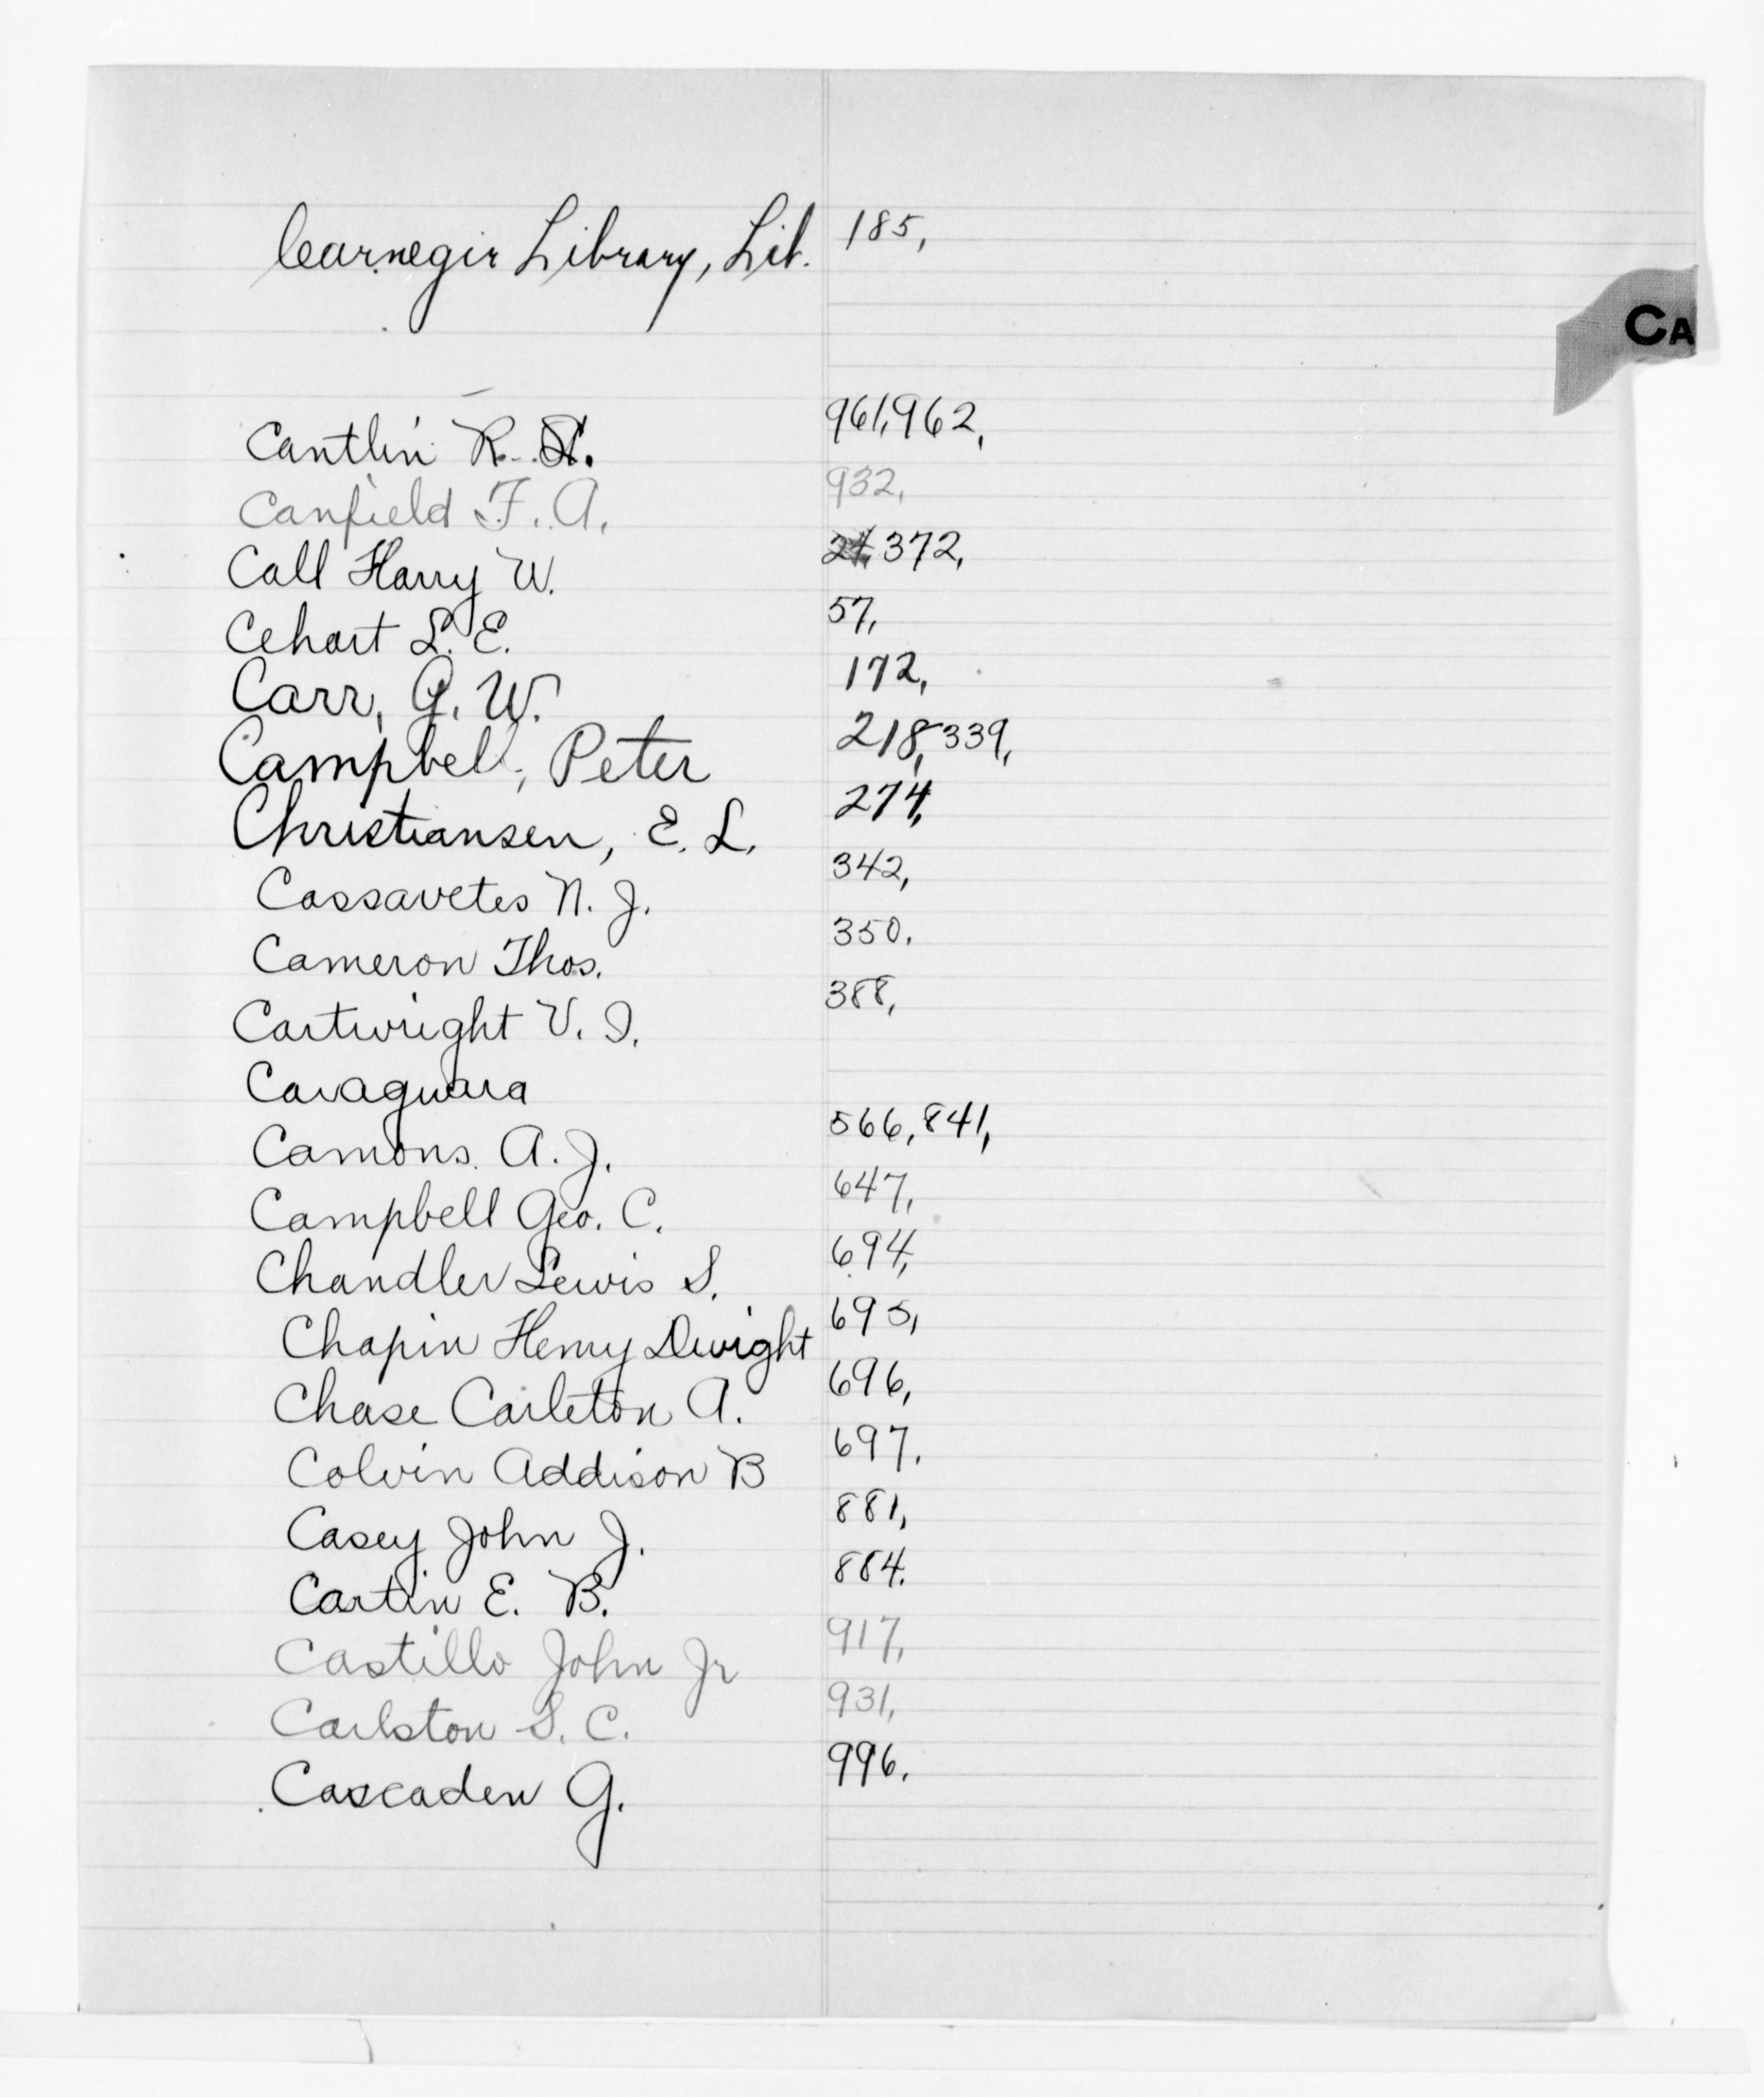 Carnegie Library, Lib. 185,
CA
Cantlin R. H. 961,962,
Canfield F. A. 932,
Call Harry W. 372,
Cehart L. E. 57,
Carr, G. W. 172,
Campbell, Peter 218,339,
Christiansen, E. L. 274,
Cassavetes N. J. 342,
Cameron Thos. 350.
Cartwright V. I. 388,
Cavaguara
Camons. A. J. 566,841,
Campbell Geo. C. 647,
Chandler Lewis S. 694,
Chapin Henry Dwight 695,
Chase Carleton A. 696,
Colvin Addison B 697.
Casey John J. 881,
Cartin E. B. 884.
Castillo John Jr 917,
Carlston S. C. 931,
Cascaden G. 996.